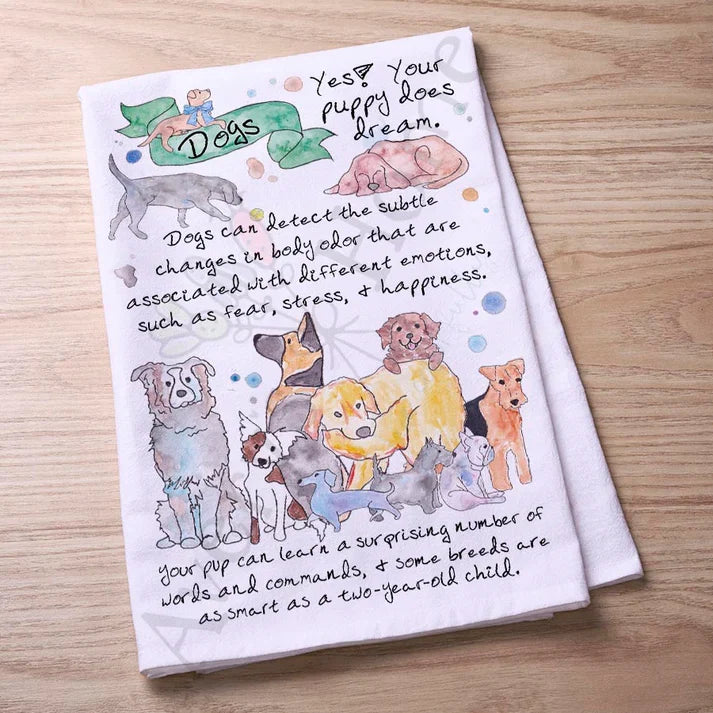 Dogs
Yes! Your
puppy does
dream.
Dogs can detect the subtle
changes in body odor that are
associated with different emotions,
such as fear, stress, & happiness.
your pup can learn a surprising number of
words and commands, & some breeds are
as smart as a two-year-old child.